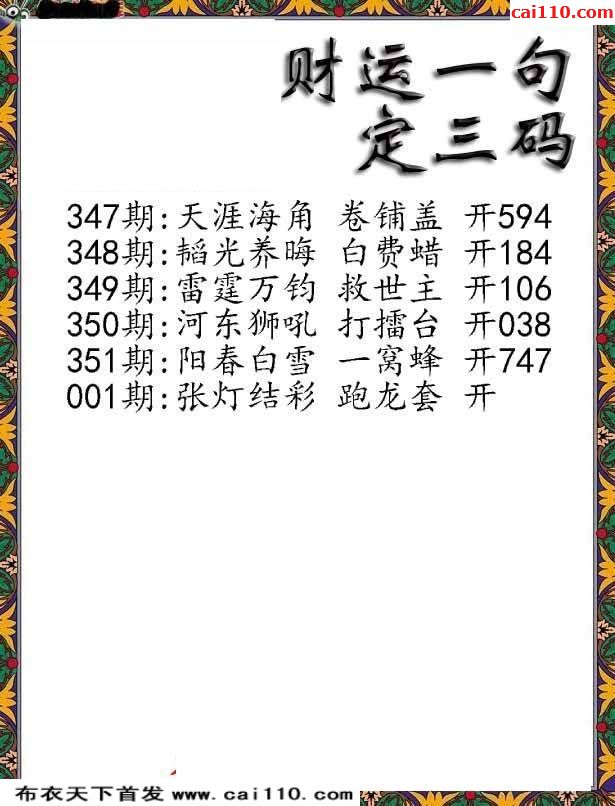 cai110.com
财运一句
定三码
347期:天涯海角 卷铺盖 开594
348期:韬光养晦 白费蜡 开184
349期:雷霆万钧 救世主 开106
350期:河东狮吼 打擂台 开038
351期:阳春白雪 一窝蜂 开747
001期:张灯结彩 跑龙套 开
布衣天下首发 www.cai110.com